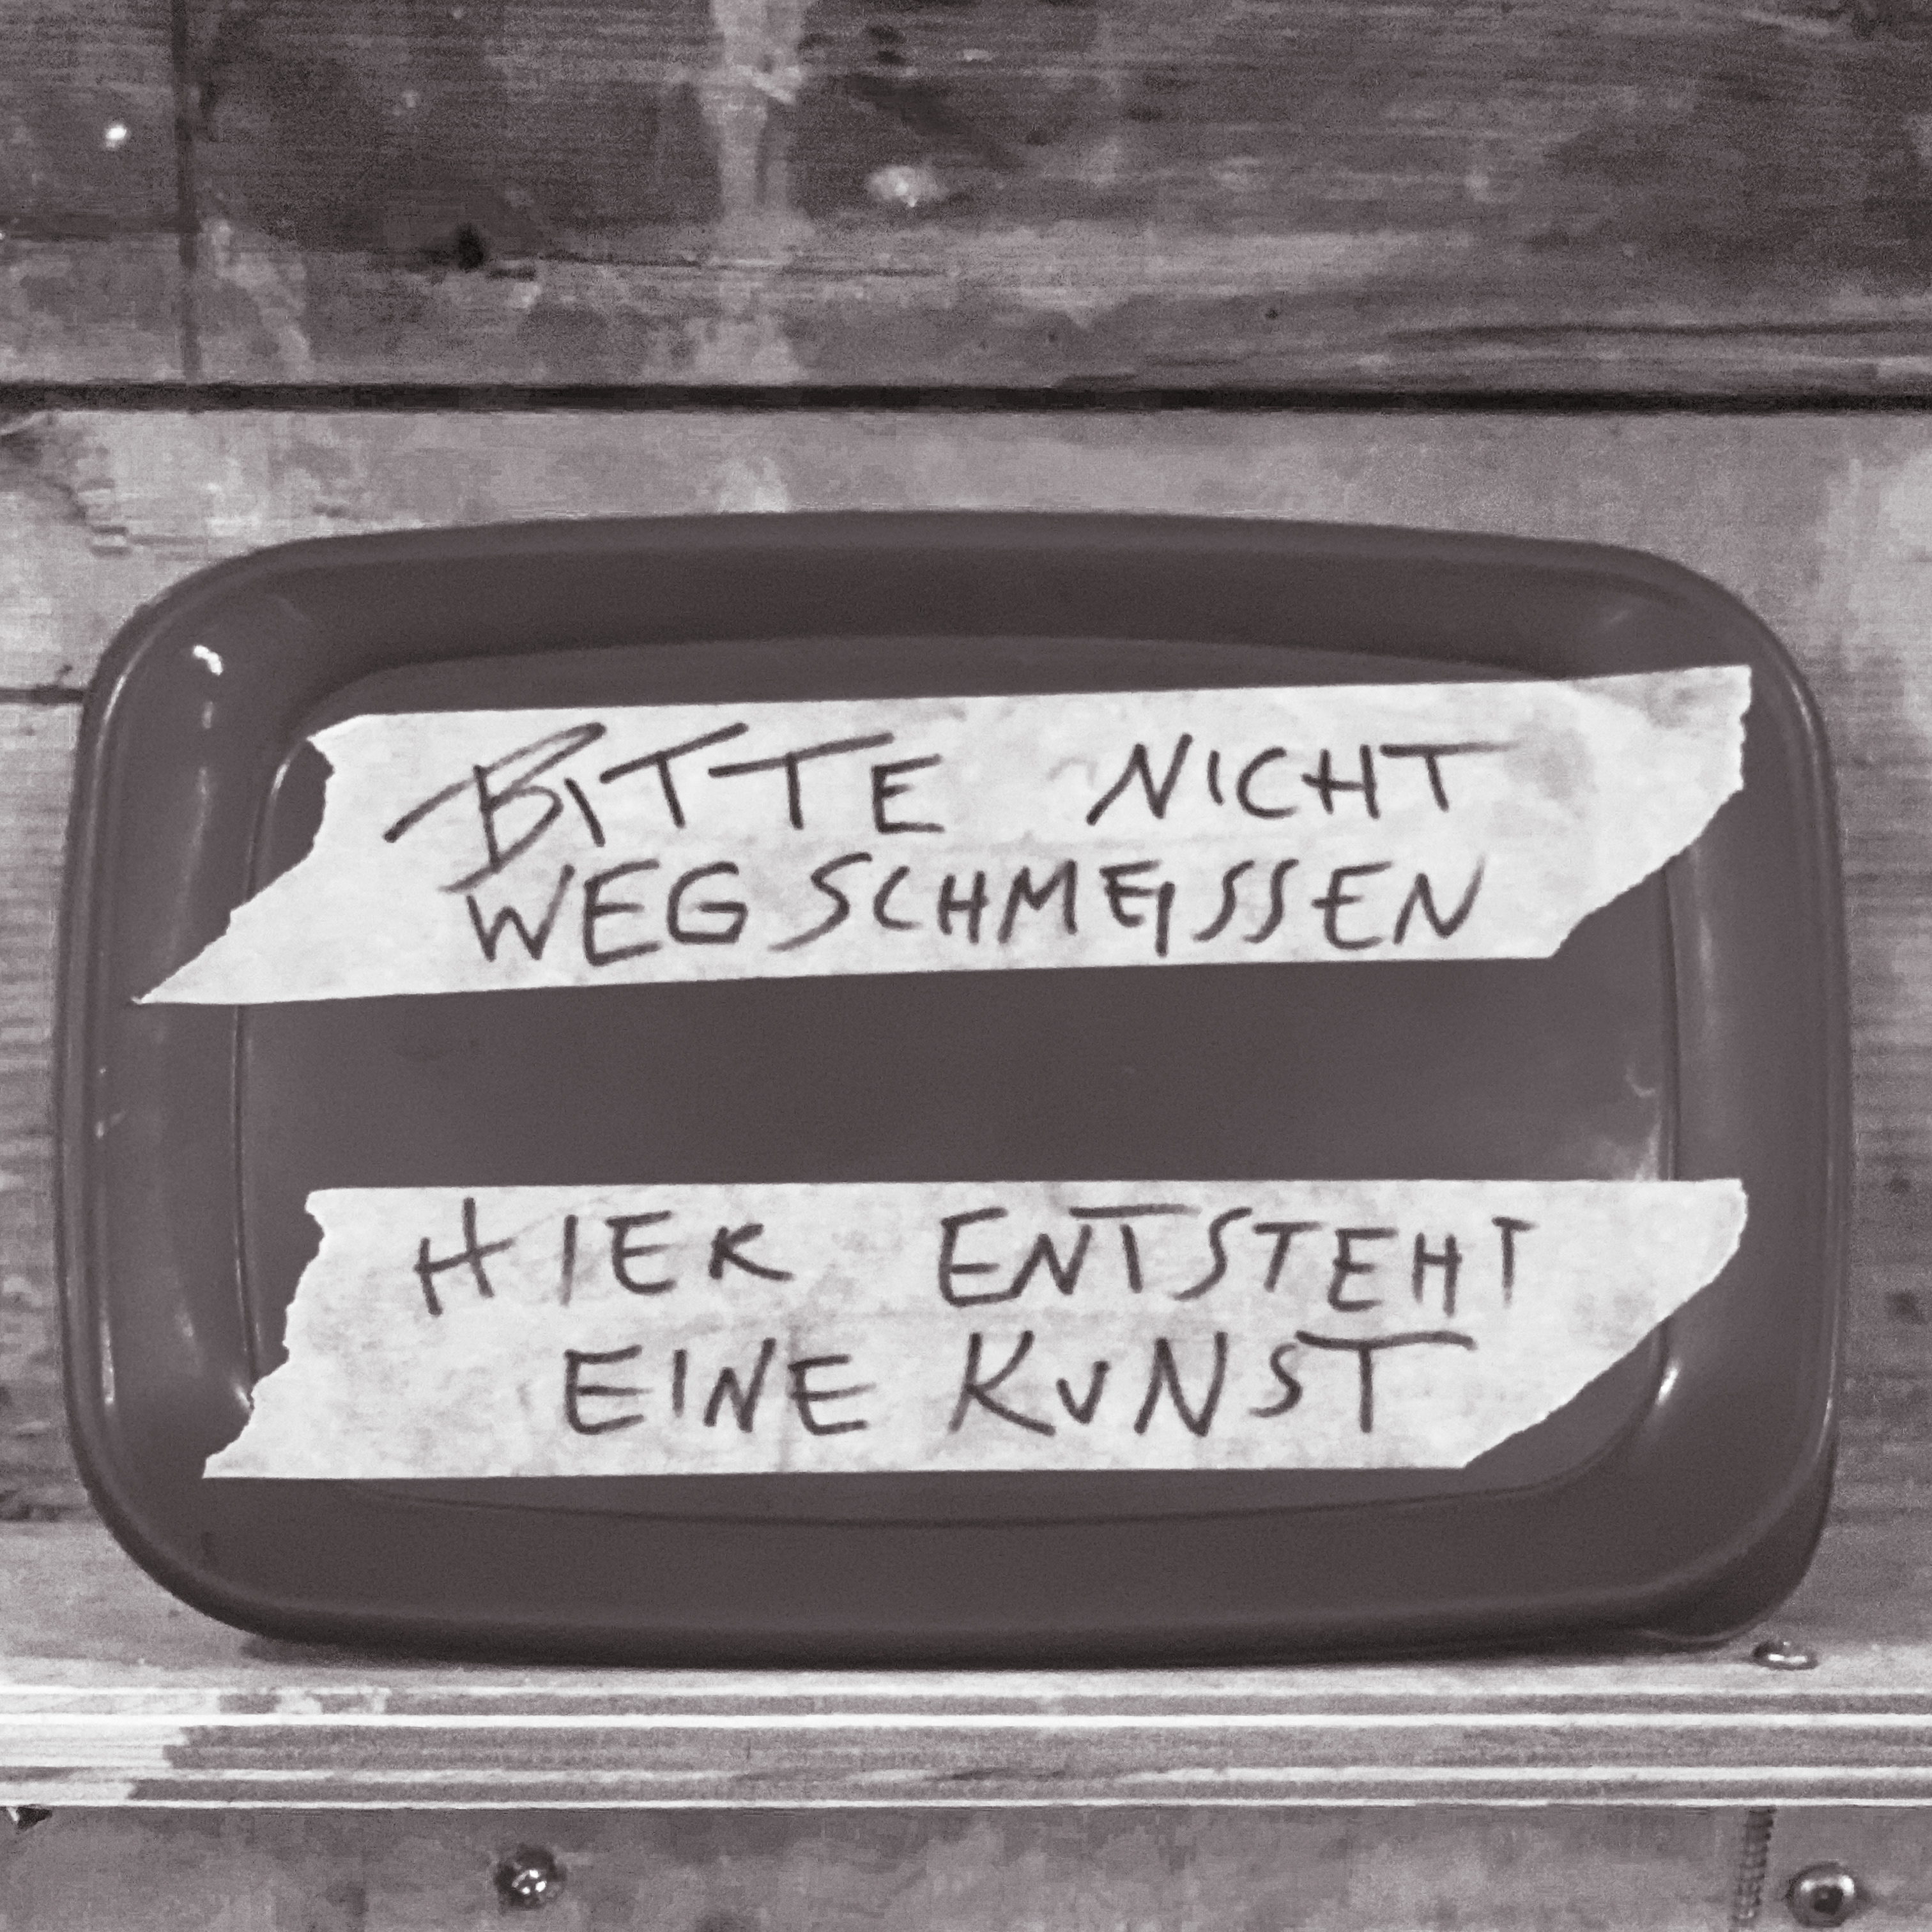 BITTE NICHT
WEGSCHMEISSEN
HIER ENTSTEHT
EINE KUNST